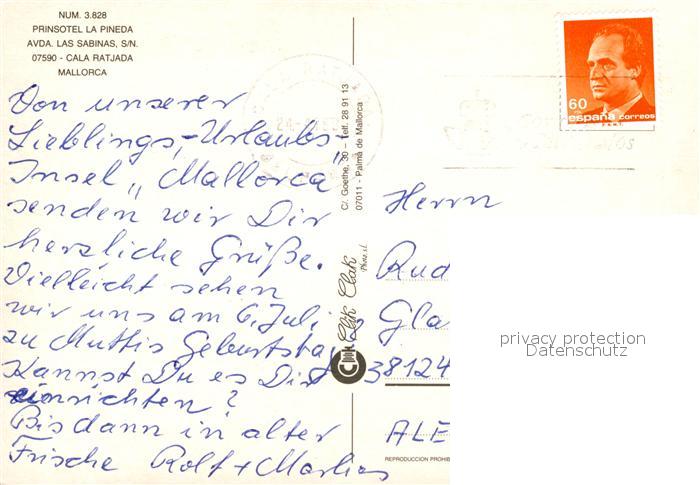 NUM. 3.828
PRINSOTEL LA PINEDA
AVDA. LAS SABINAS, S/N.
07590 - CALA RATJADA
MALLORCA
Von unserer
Lieblings,-Urlaubs-
Insel „Mallorca"
senden wir Dir
herzliche Grüße.
Vielleicht sehen
wir uns am 6. Juli,
zu Muttis Geburtstag
Kannst Du es Dir
einrichten?
Bis dann in alter
Frische Rolf + Markus
C/. Goethe, 30 – Telf. 28 91 13
07011 - Palma de Mallorca
Clik Clak
REPRODUCCION PROHIB
60
españa correos
Herrn
Rud
Gla
38124
ALE
privacy protection
Datenschutz